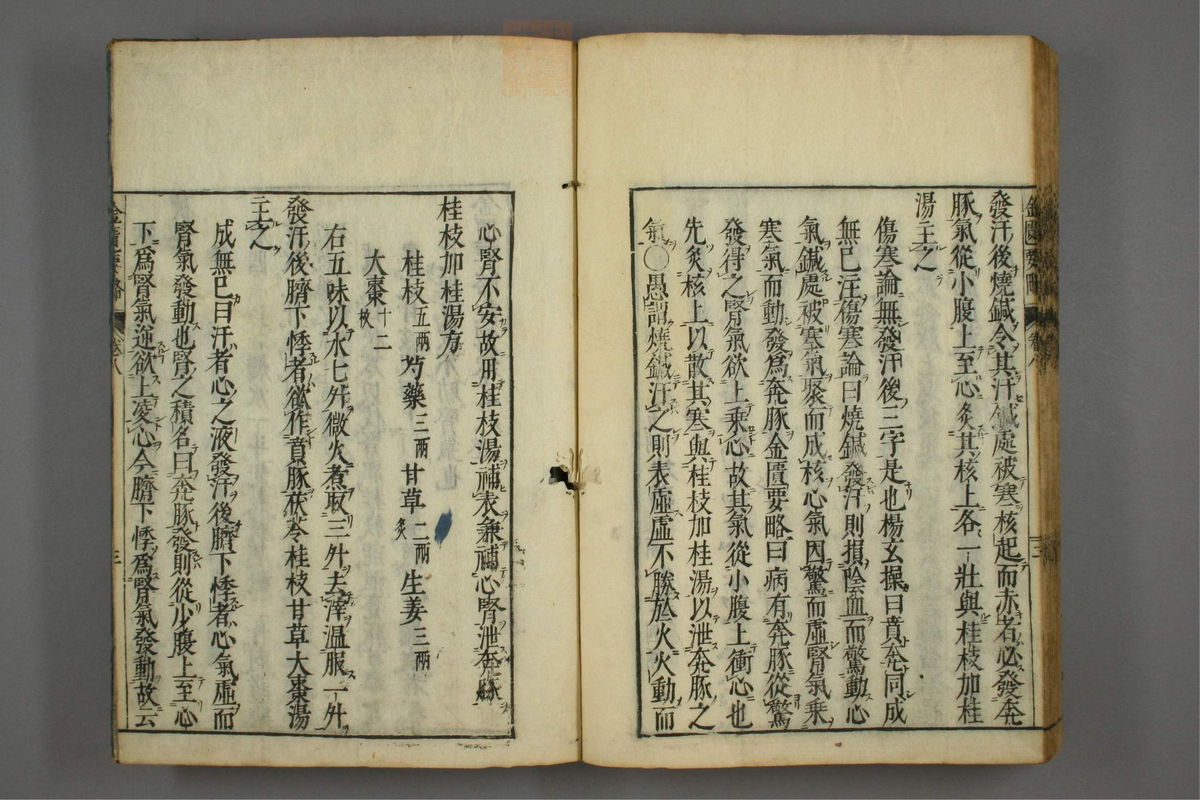 發汗後燒鍼令其汗鍼處被寒核起而赤者必發奔
豚氣從小腹上至心灸其核上各一壯與桂枝加桂
湯主之
傷寒論無發汗後三字是也楊玄操曰賁奔同成
無已註傷寒論曰燒鍼發汗則損陰血而驚動心
氣鍼處被寒氣聚而成核心氣因驚而虛腎氣乗
寒氣而動發爲奔豚金匱要略曰病有奔豚從驚
發得之腎氣欲上乗心故其氣從小腹上衝心也
先灸核上以散其寒與桂枝加桂湯以泄奔豚之
氣〇愚謂燒鍼汗之則表虛虛不勝於火火動而
心腎不安故用桂枝湯補表兼補心腎泄奔豚
桂枝加桂湯方
桂枝五兩 芍藥三兩 甘草二兩炙 生姜三兩
大棗十二枚
右五味以水七升微火煮取三升去滓温服一升
發汗後臍下悸者欲作賁豚茯苓桂枝甘草大棗湯
主之
成無已曰汗者心之液發汗後臍下悸者心氣虛而
腎氣發動也腎之積名曰奔豚發則從少腹上至心
下爲腎氣逆欲上凌心今臍下悸爲腎氣發動故云